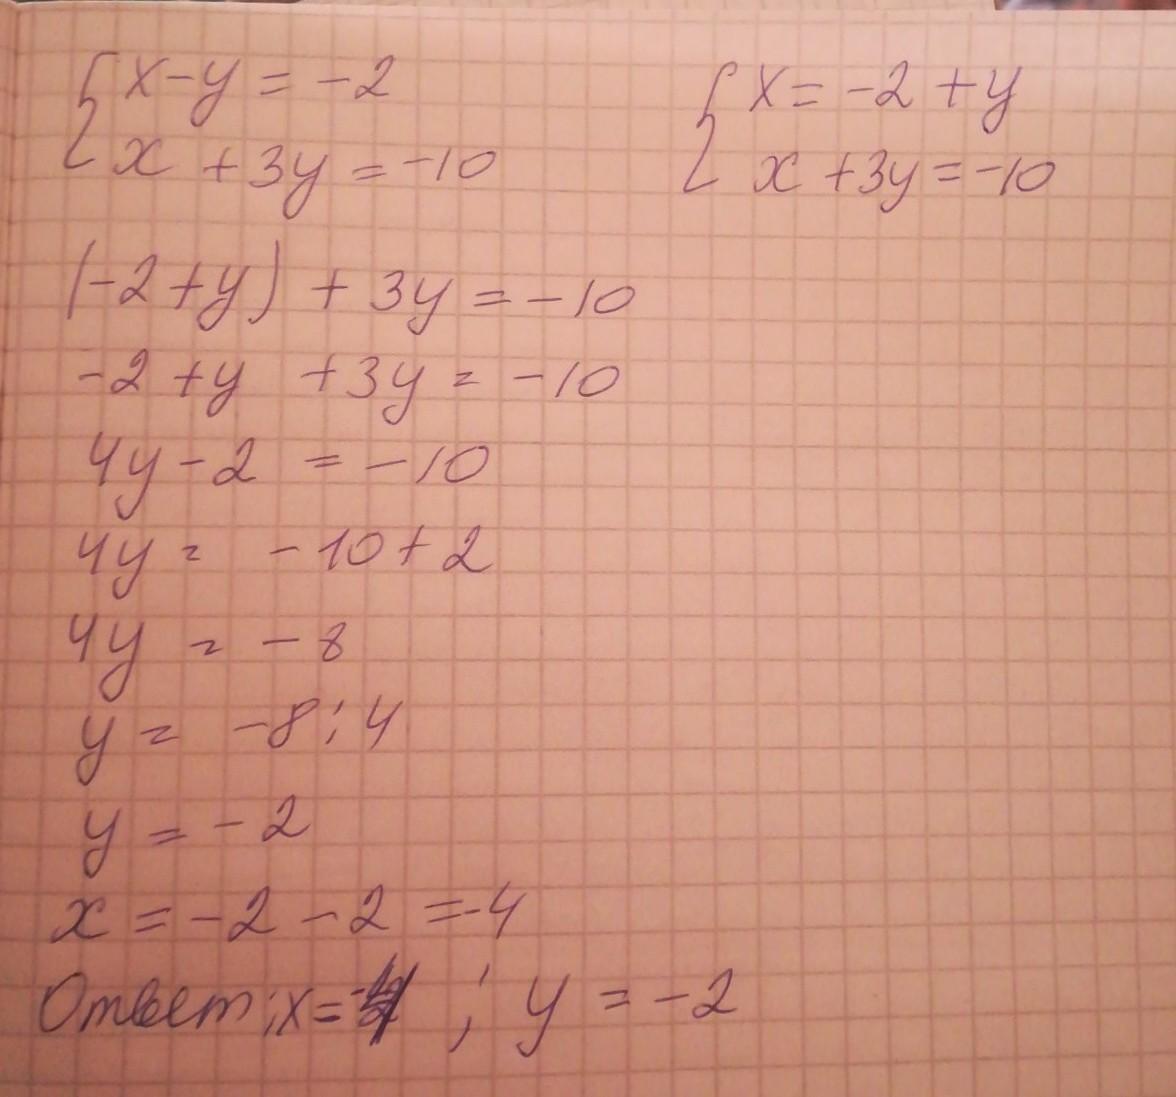 { x - y = -2
x + 3y = -10
{ x = -2 + y
x + 3y = -10
(-2 + y) + 3y = -10
-2 + y + 3y = -10
4y - 2 = -10
4y = -10 + 2
4y = -8
y = -8 : 4
y = -2
x = -2 - 2 = -4
Ответ: x = -4 ; y = -2